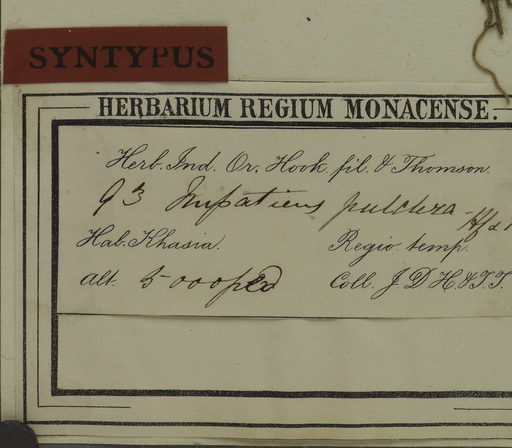 SYNTYPUS
HERBARIUM REGIUM MONACENSE.
Herb. Ind. Or. Hook fil. & Thomson.
93 Impatiens pulchra Hf & T
Hab. Khasia. Regio temp.
Alt. 5000 ped Coll. J. D. H. & T. T.